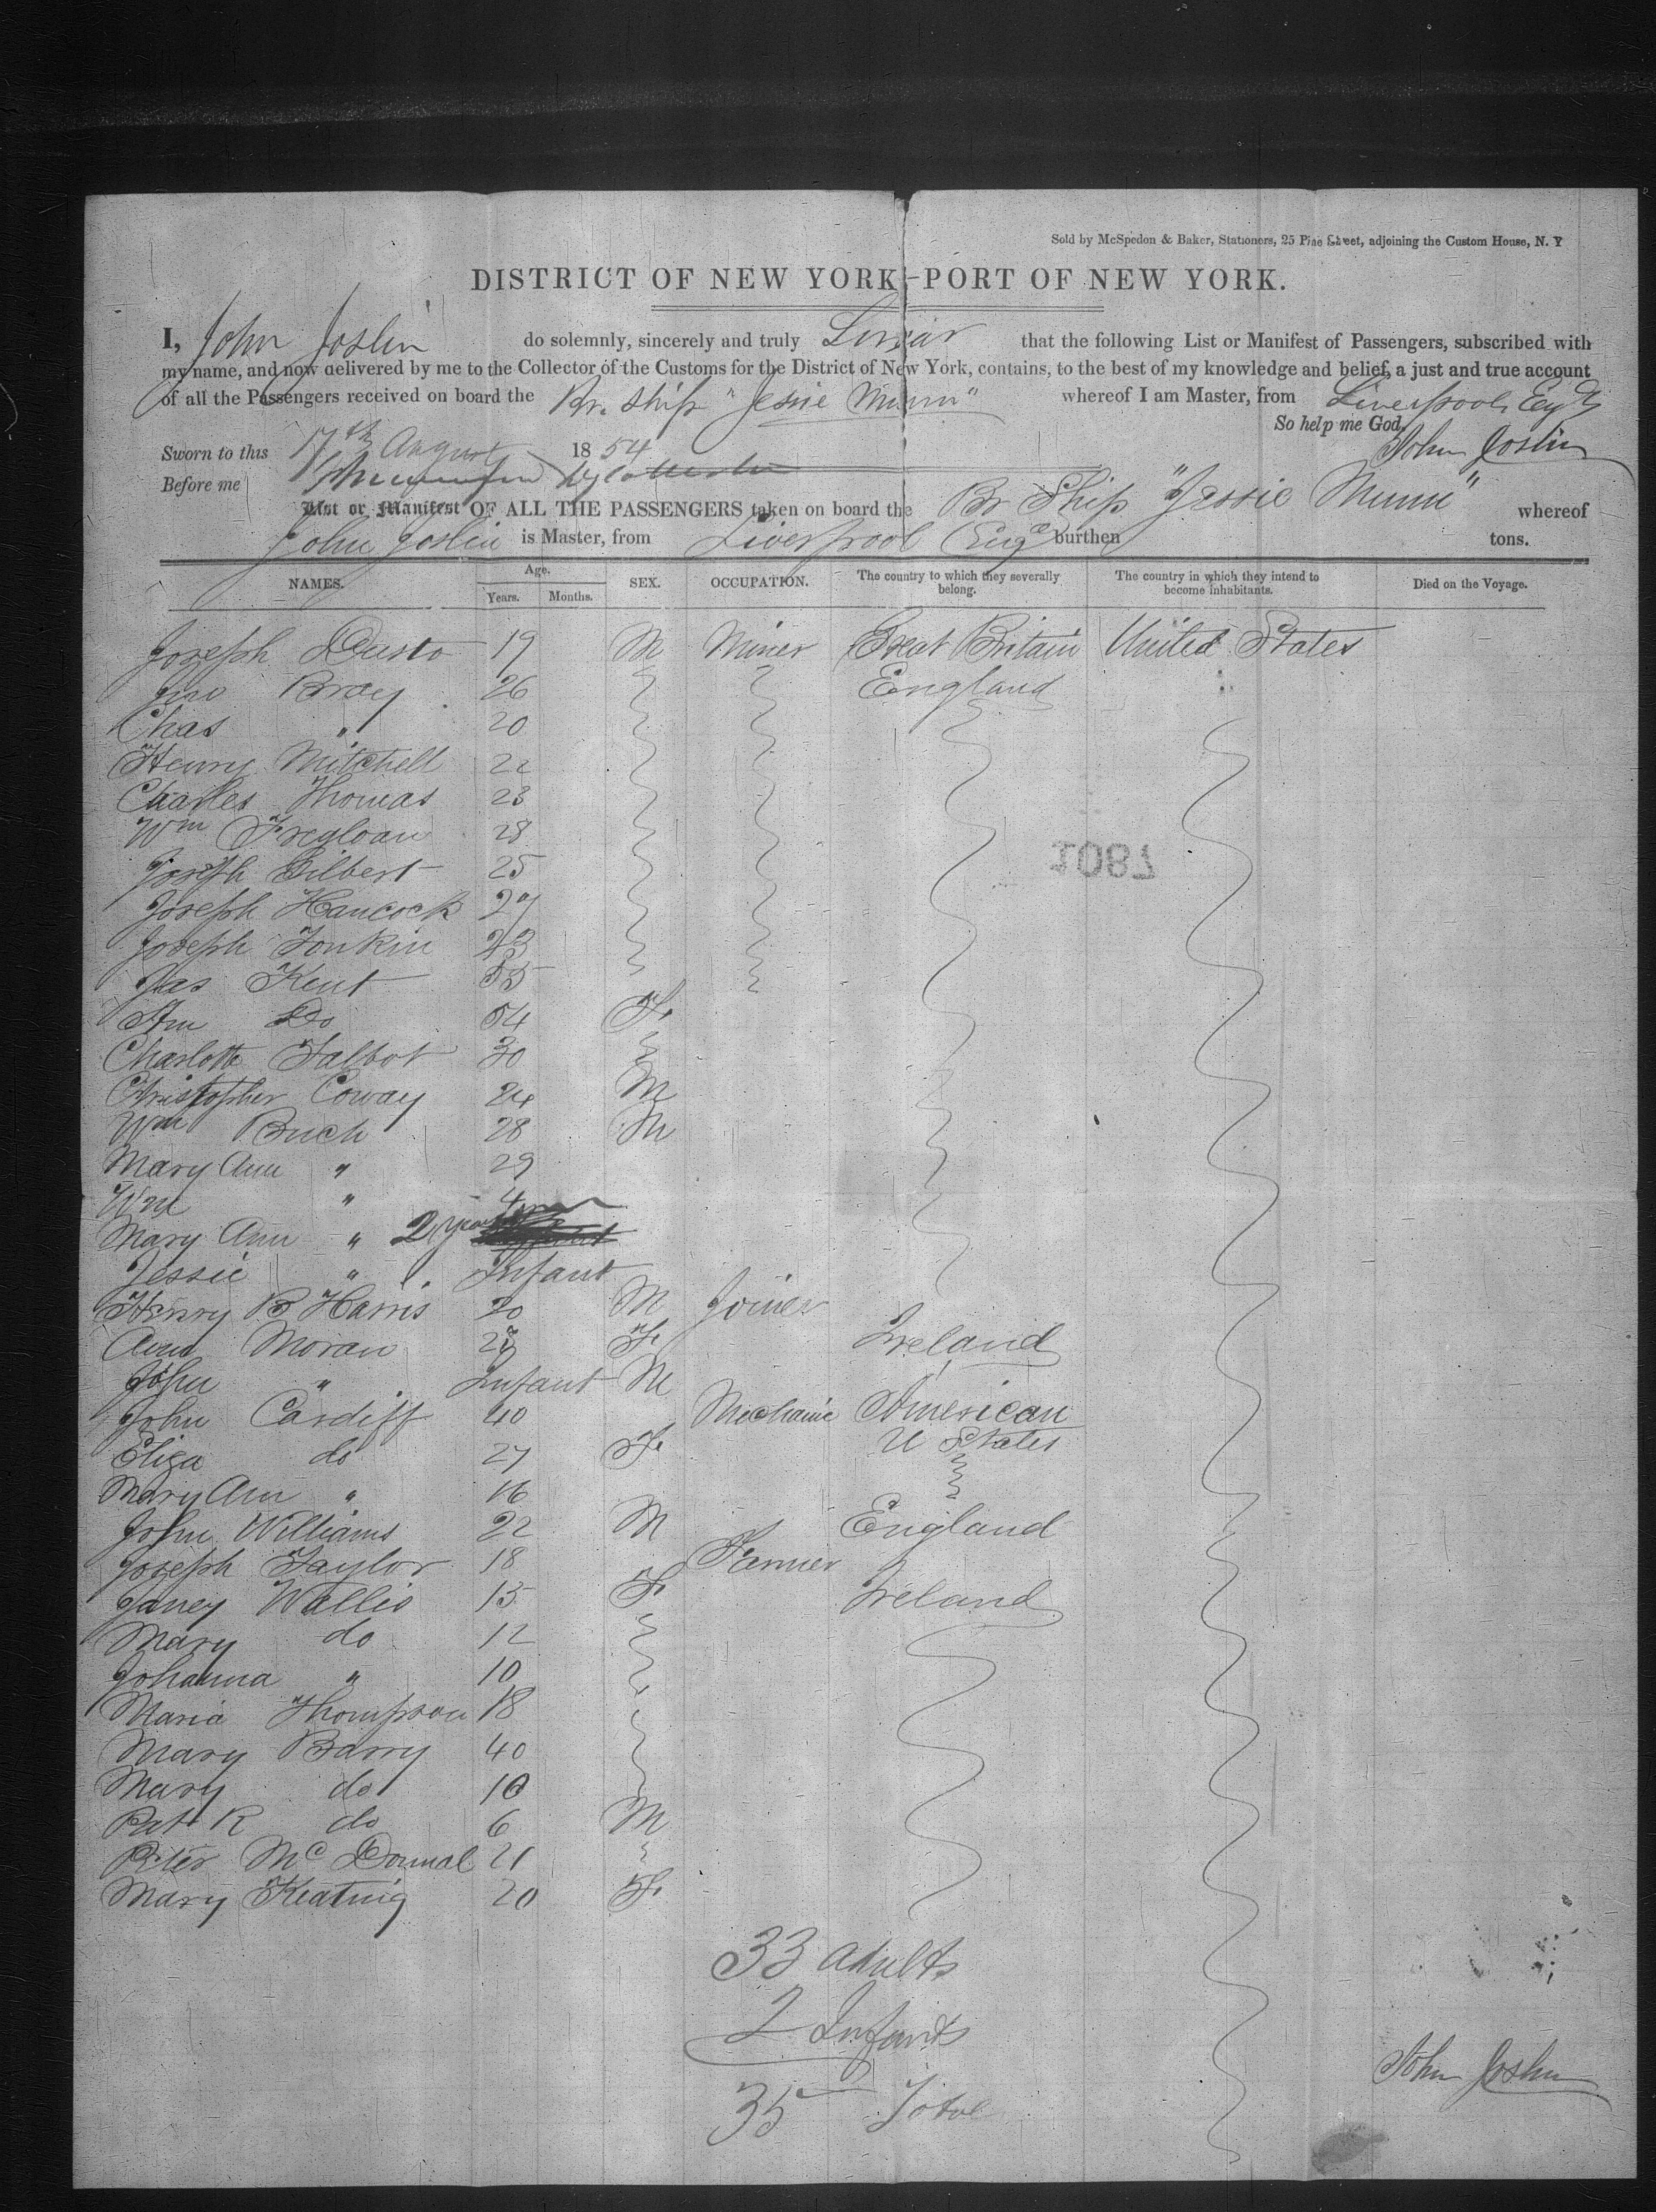 Sold by McSpedon & Baker, Stationers, 25 Pine Street, adjoining the Custom House, N. Y
DISTRICT OF NEW YORK-PORT OF NEW YORK.
I, John Joslin do solemnly, sincerely and truly Swear that the following List or Manifest of Passengers, subscribed with
my name, and now delivered by me to the Collector of the Customs for the District of New York, contains, to the best of my knowledge and belief, a just and true account
of all the Passengers received on board the Br. Ship "Jessie Munn" whereof I am Master, from Liverpool, Eng
So help me God,
Sworn to this 17th August 1854 John Joslin
Before me
List or Manifest OF ALL THE PASSENGERS taken on board the Br Ship "Jessie Munn" whereof
John Joslin is Master, from Liverpool Eng burthen tons.
NAMES. Age. Years. Months. SEX. OCCUPATION. The country to which they severally belong. The country in which they intend to become inhabitants. Died on the Voyage.
Joseph 19 M Miner Great Britain United States
Jno Bray 26 England
Chas " 20
Henry Mitchell 22
Charles Thomas 23
Wm 28
Joseph Gilbert 25
Joseph Hancock 27
1087
Joseph Tonkin 23
Jas Kent 55
Ann Do 54 F
Charlotte Talbot 30
Christopher Coway 24 M
Wm Buch 28 M
Mary Ann " 29
Wm " 4
Mary Ann " 2 years
Jessie " Infant
Henry B Harris 20 M Joiner
Ann Moran F Ireland
John " Infant M
John Cardiff 40 Mechanic American
Eliza do 27 F U States
Mary Ann " 16
John Williams 22 M England
Joseph Taylor 18 Farmer
Janey Wallis 15 F Ireland
Mary do 12
Johanna " 10
Maria Thompson 18
Mary Barry 40
Mary do 10
Pat K do 6 M
Peter Mc Donnal 21
Mary Keating 20 F
33 Adults
2 Infants
35 Total
John Joslin